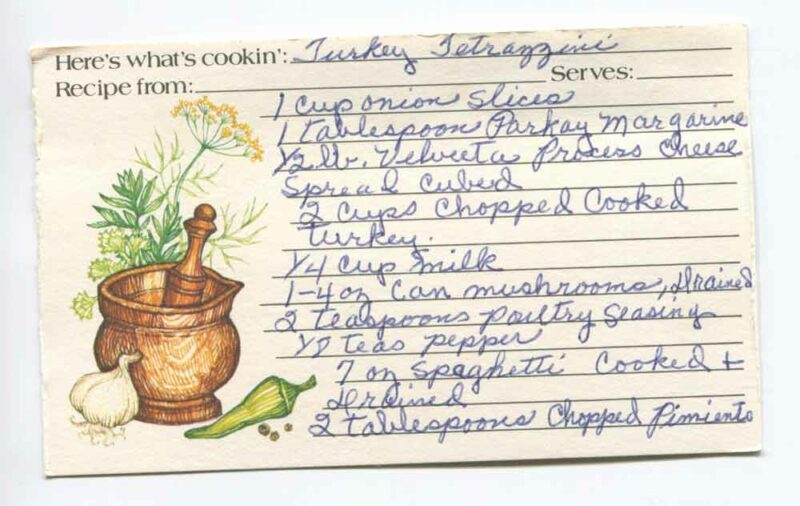 Here's what's cookin': Turkey Tetrazzini
Recipe from: Serves:
1 cup onion slices
1 tablespoon Parkay Margarine
1/2 lb. Velveeta Process Cheese
Spread Cubed
2 Cups Chopped Cooked
Turkey.
1/4 Cup Milk
1-4 oz Can mushrooms, drained
2 Teaspoons Poultry Seasing
1/2 teas pepper
7 oz Spaghetti Cooked +
drained
2 tablespoons Chopped Pimiento